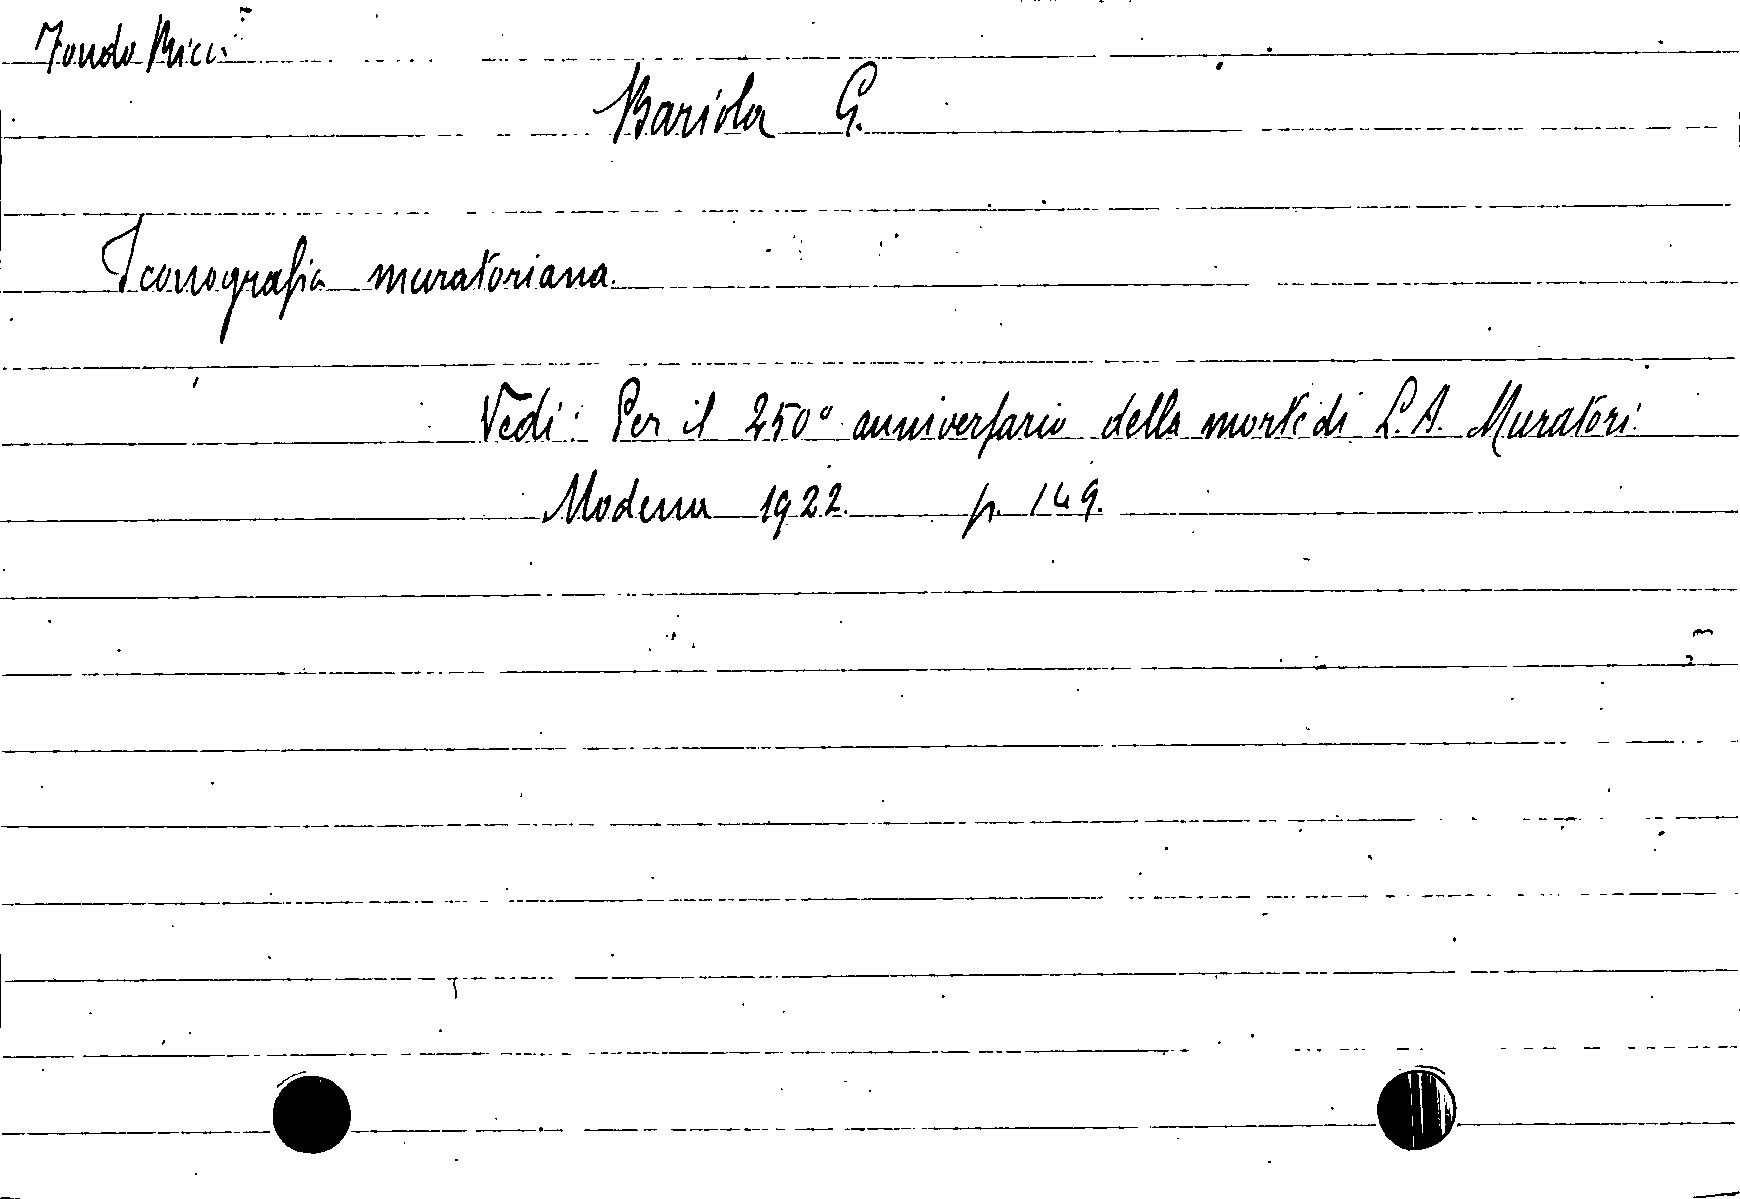 Fondo Ricci
Bariola G.
Iconografia muratoriana.
Vedi: Per il 250° anniversario della morte di L. A. Muratori.
Modena 1922. p. 149.